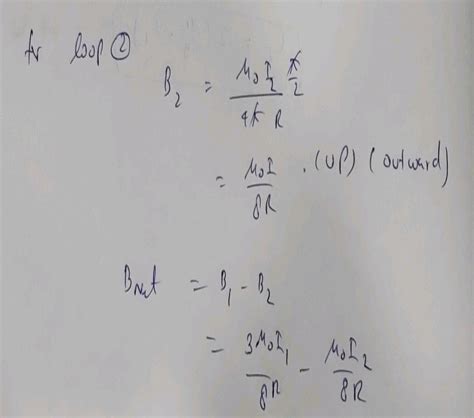 for loop ②
B₂ = μ₀I₂ π/2 / 4π R
= μ₀I / 8R . (UP) (outward)
Bnet = B₁ - B₂
= 3μ₀I₁ / 8R - μ₀I₂ / 8R